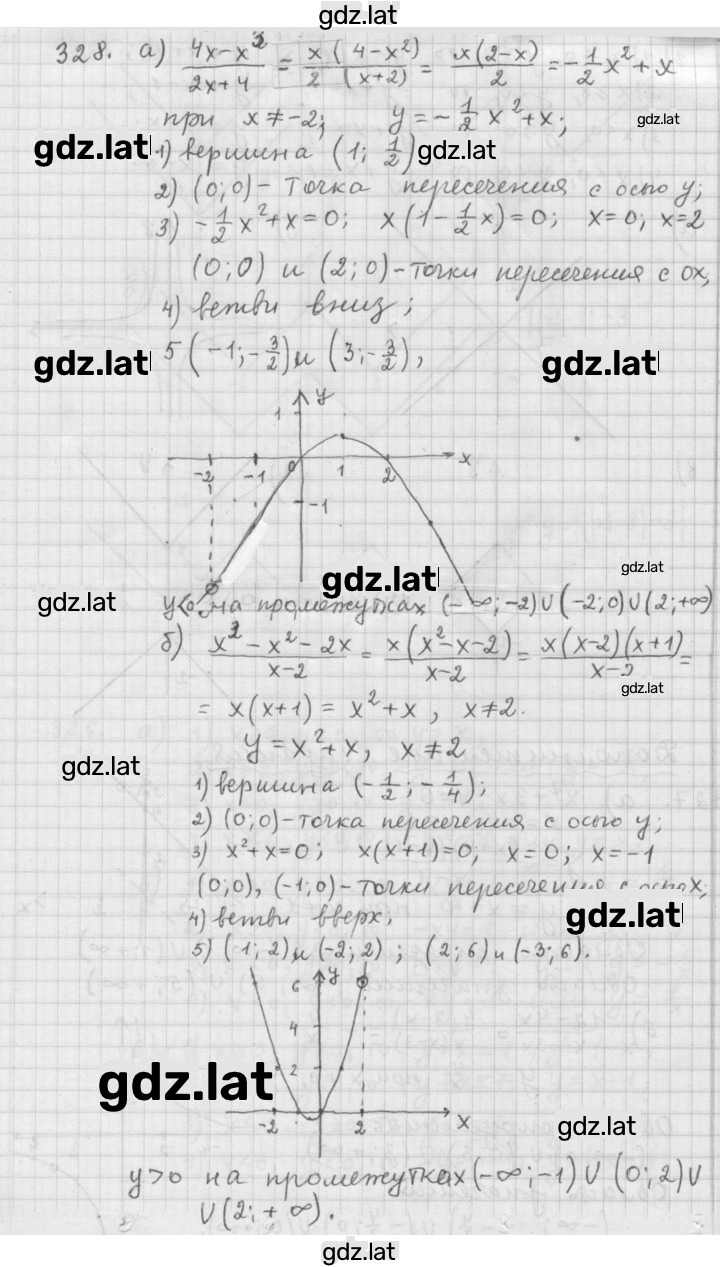 gdz.lat
328. а) (4x-x³)/(2x+4) = x(4-x²)/2(x+2) = x(2-x)/2 = -1/2 x² + x
при x ≠ -2; y = -1/2 x² + x; gdz.lat
gdz.lat 1) вершина (1; 1/2) gdz.lat
2) (0;0) - точка пересечения с осью y;
3) -1/2 x² + x = 0; x(1 - 1/2 x) = 0; x=0; x=2
(0;0) и (2;0) - точки пересечения с ox;
4) ветви вниз;
gdz.lat 5 (-1; -3/2) и (3; -3/2), gdz.lat
1 y
-2 -1 0 1 2 x
-1
gdz.lat gdz.lat
gdz.lat y<0 на промежутках (-∞;-2)∪(-2;0)∪(2;+∞)
б) (x³ - x² - 2x)/(x-2) = x(x²-x-2)/(x-2) = x(x-2)(x+1)/(x-2) =
gdz.lat
= x(x+1) = x² + x, x≠2.
y = x² + x, x ≠ 2
gdz.lat
1) вершина (-1/2; -1/4);
2) (0;0) - точка пересечения с осью y;
3) x² + x = 0; x(x+1)=0; x=0; x=-1
(0;0), (-1;0) - точки пересечения с осью x;
4) ветви вверх; gdz.lat
5) (1; 2) и (-2; 2); (2; 6) и (-3; 6).
6 y
4
2
gdz.lat
-2 2 x
gdz.lat
y>0 на промежутках (-∞;-1)∪(0;2)∪
∪(2;+∞).
gdz.lat